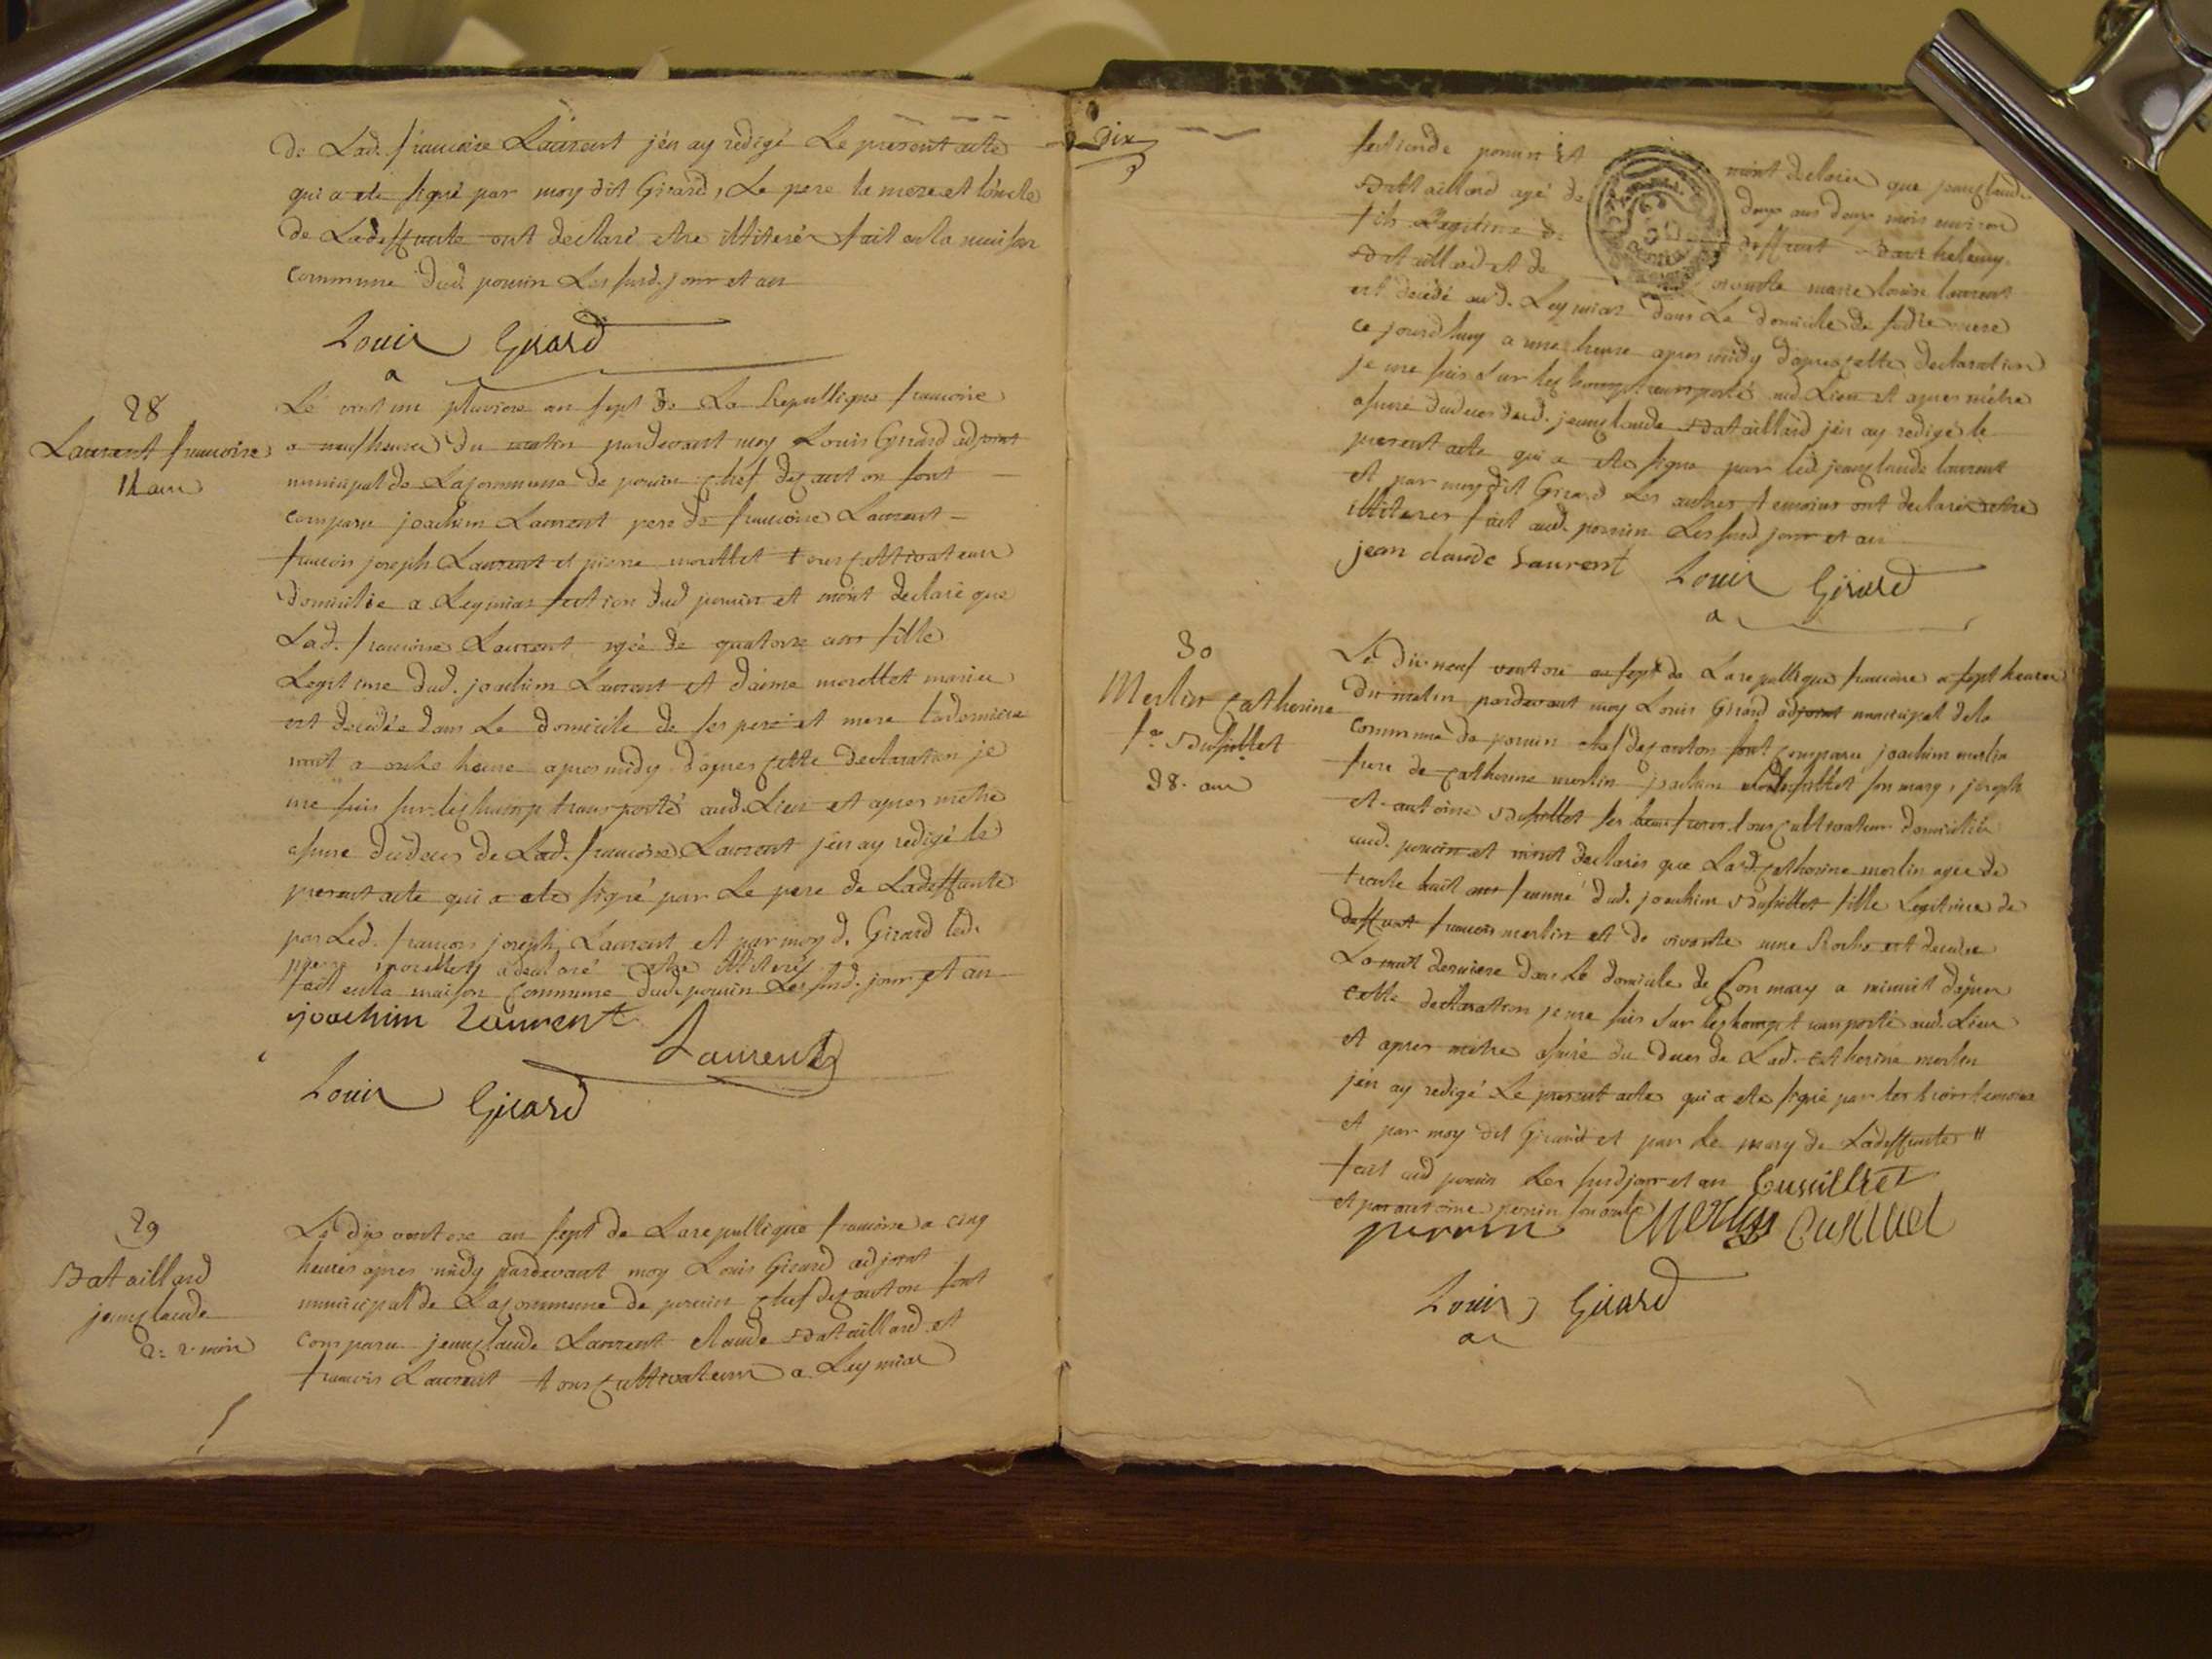 de Lad. francoise Laurent j'en ay redigé Le present acte
qui a ete signé par moy dit Girard, Le pere la mere et l'oncle
de Ladeffunte ont declaré etre illiterés fait en la maison
commune dud. poncin Les susd. jour et an
Louis Girard
a
28
Laurent francoise
14 ans
Le vint un pluviose an sept de La Republique francoise
a neuf heures du matin pardevant moy Louis Girard adjoint
municipal de La commune de poncin chef de canton sont
comparu joachim Laurent pere de francoise Laurent
francois joseph Laurent et pierre morellet tous cultivateurs
domicilié a Leymiat section dud poncin et m'ont declaré que
Lad. francoise Laurent agée de quatorze ans fille
Legitime dud. joachim Laurent et d'aime morellet mariés
est decedée dans Le domicile de ses pere et mere la derniere
nuit a onze heure apres midy d'apres cette declaration je
me suis sur le champ transporté aud. Lieu et apres m'etre
assuré du deces de Lad. francoise Laurent j'en ay redigé le
present acte qui a ete signé par Le pere de Ladeffunte
par Led. francois joseph Laurent et par moy d. Girard led.
pierre morellet a declaré etre illiteré
fait en la maison commune dud. poncin Les susd. jour et an
joachim Laurent
Laurent
Louis Girard
29
Bataillard
jean claude
2: 2 mois
Le dix ventose an sept de La republique francoise a cinq
heures apres midy pardevant moy Louis Girard adjoint
municipal de La commune de poncin chef de canton sont
comparu jean claude Laurent claude Bataillard et
francois Laurent tous cultivateurs a Leymiat
Dix
section de poncin et m'ont declaré que jean claude
Bataillard agé de deux ans deux mois environ
fils Legitime de deffunt Barthelemy
Bataillard et de vivante marie louise laurent
est decedé aud. Leymiat dans Le domicile de sadte mere
ce jourd'huy a une heure apres midy d'apres cette declaration
je me suis sur le champ transporté aud. Lieu et apres m'etre
assuré du deces dud. jean claude Bataillard j'en ay redigé le
present acte qui a ete signé par led. jean claude laurent
et par moy dit Girard Les autres temoins ont declaré etre
illiterés fait aud. poncin Les susd jour et an
jean claude Laurent Louis Girard
a
30
Merlin Catherine
fe Dusillet
38. ans
Le dix neuf ventose an sept de La republique francoise a sept heures
du matin pardevant moy Louis Girard adjoint municipal de la
commune de poncin chef de canton sont comparu joachim merlin
frere de catherine merlin joachim Dusillet son mary, joseph
et antoine Dusillet ses beaux freres tous cultivateurs domiciliés
aud. poncin et m'ont declarés que Lad. catherine merlin agée de
trente huit ans femme dud. joachim Dusillet fille Legitime de
deffunt francois merlin et de vivante Roche est decedée
La nuit derniere dans le domicile de son mary a minuit d'apres
cette declaration je me suis sur le champ transporté aud. Lieu
et apres m'etre assuré du deces de Lad. catherine merlin
j'en ay redigé Le present acte qui a ete signé par les trois temoins
et par moy dit Girard et par Le mary de Ladeffunte "
fait aud poncin Les susd jour et an Cusilliet
et par antoine perrin son oncle
perrin Merlin Cusilliet
Louis Girard
a